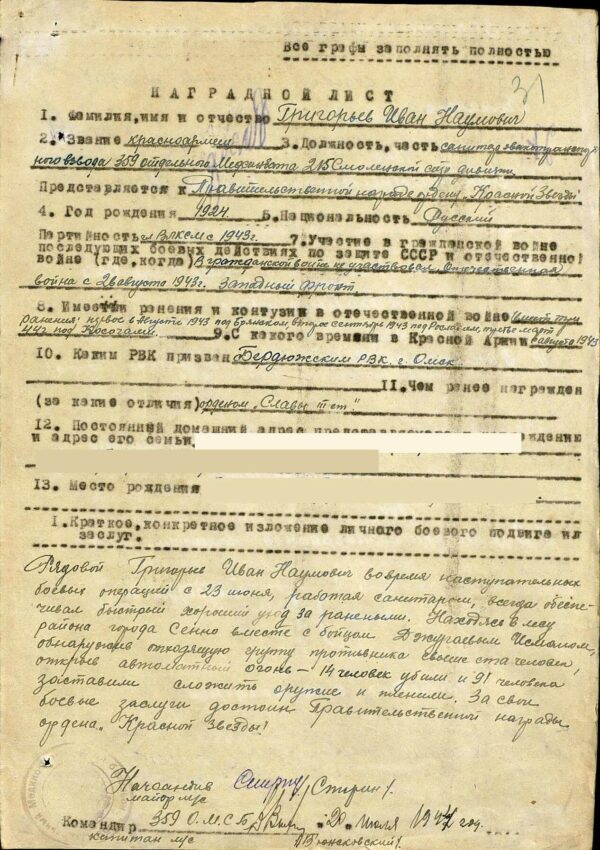 Все графы заполнять полностью
31
НАГРАДНОЙ ЛИСТ
1. Фамилия, имя и отчество Григорьев Иван Наумович
2. Звание красноармеец 3. Должность, часть санитар эвакотранспорт
ного взвода 359 отдельного Медсанбата 215 Смоленской стр. дивизии
Представляется к Правительственной награде ордену „Красной Звезды"
4. Год рождения 1924 5. Национальность Русский
Партийность чл ВЛКСМ с 1943г. 7. Участие в гражданской войне
последующих боевых действиях по защите СССР и отечественной
войне (где, когда) В гражданской войне не участвовал, Отечественная
война с 2 августа 1943г. Западный фронт
8. Имеет ли ранения и контузии в отечественной войне имеет три
ранения: первое в августе 1943 под Брянском, второе сентябрь 1943 под Рославлем, третье март
44г. под Косочами. 9. С какого времени в Красной Армии с 1943
10. Каким РВК призван Бердюжским РВК, г. Омск
11. Чем ранее награжден
(за какие отличия) орденом „Славы III ст"
12. Постоянный домашний адрес представляемого
и адрес его семьи
13. Место рождения
I. Краткое, конкретное изложение личного боевого подвига или
заслуг.
Рядовой Григорьев Иван Наумович во время наступательных
боевых операций с 23 июня, работая санитаром, всегда обеспе-
чивал быстрый хороший уход за ранеными. Находясь в лесу
района города Сенно вместе с бойцом Джураевым Исмаилом,
обнаружив отходящую группу противника свыше ста человек,
открыв автоматный огонь – 14 человек убили и 91 человека
заставили сложить оружие и пленили. За свои
боевые заслуги достоин Правительственной награды
ордена „Красной Звезды!
Начсандив
майор м/с
Командир 359 О.М.С.Б. 20 июля 1944 год.
капитан м/с